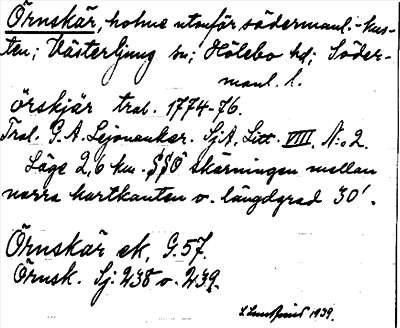 Örnskär, holme utanför södermanl.-kus-
ten; Västerljung sn; Hölebo hd; Söder-
manl. l.
örskjär trol. 1774-76.
Trol. G.A. Lejonanker. SjA. Litt. VIII. N:o 2.
Läge 2,6 km. SSÖ skärningen mellan
norra kartkanten o. längdgrad 30'.
Örnskär ek, G.57.
Örnsk. Sj: 238 o. 239.
1939.